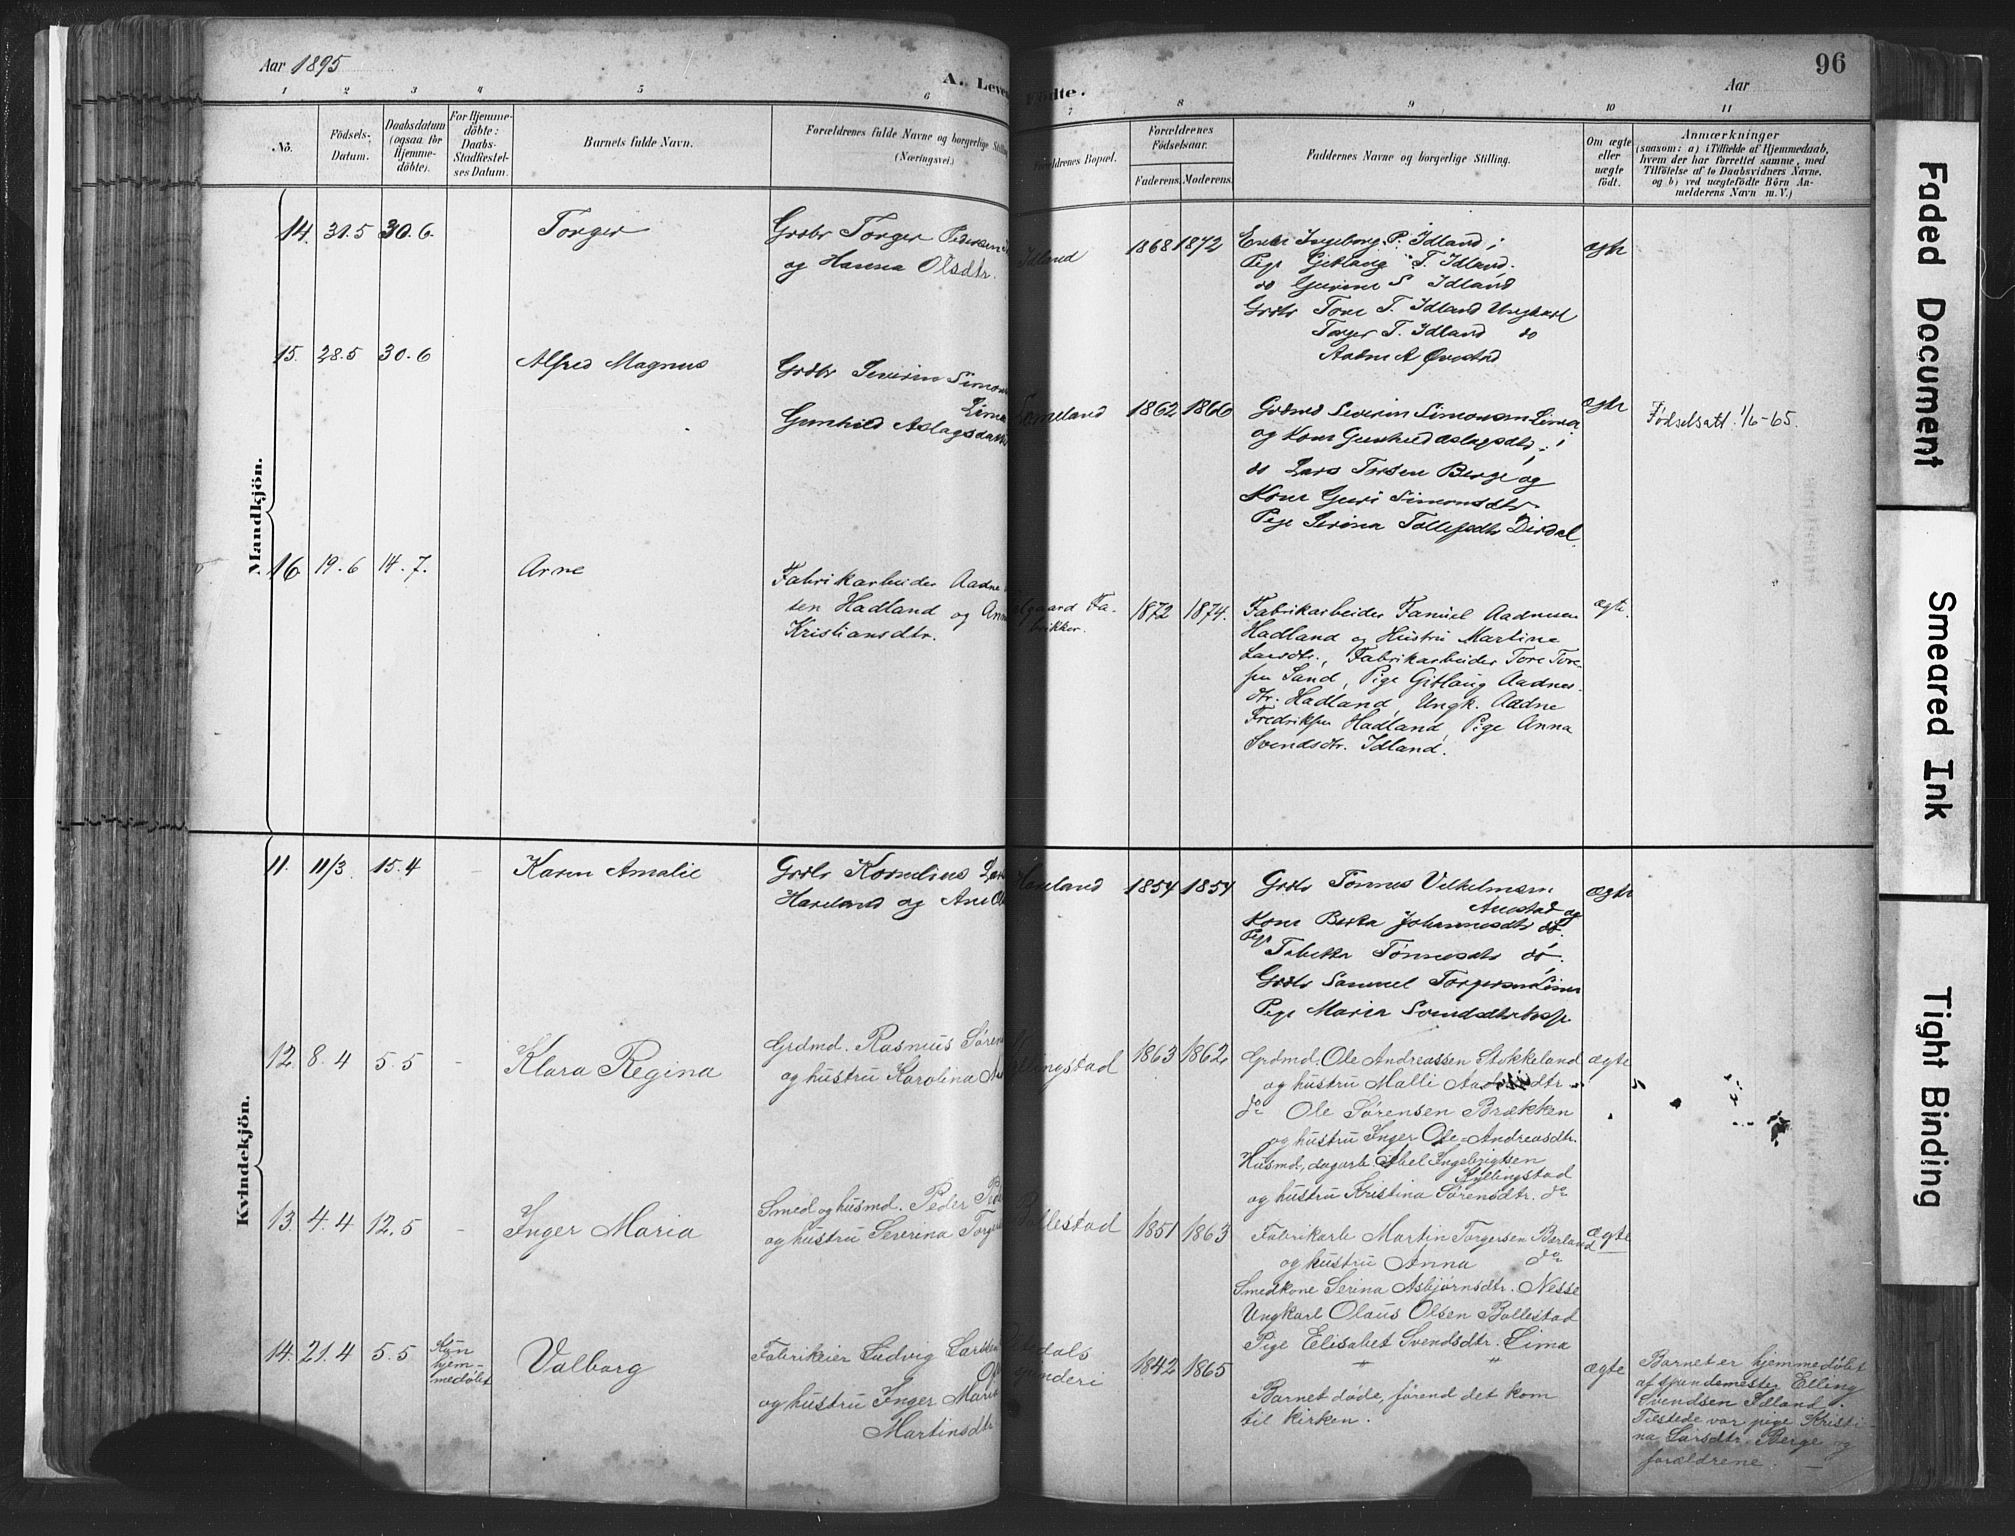 Aar 1895
A. Leve
1 2 3 4 5 6
No.
Födsels-
Datum.
Daabsdatum
(ogsaa for
Hjemme-
döbte).
For Hjemme-
döbte:
Daabs-
Stadfæstel-
ses Datum.
Barnets fulde Navn.
Forældrenes fulde Navne og borgerlige Stilling
(Næringsvei)
Mandkjön.
14. 31.5 30.6. Torger
Grdbr Torger Pedersen
og Hanna Olsdtr.
15. 28.5 30.6 Alfred Magnus
Grdbr Severin Simons
Lima
Gunhild Aslagsdatter
16. 19.6 14.7. Arne
Fabrikarbeider Aadne
sen Hadland og Anna
Kristiansdtr.
Kvindekjön.
11. 11/3. 15.4 Karen Amalie
Grdbr Kornelius
Haaland og Ane
12. 8.4 5.5 - Klara Regina
Grdmd. Rasmus Sören
og hustru Karolina
13. 4.4 12.5 - Inger Maria
Smed og husmd. Peder
og hustru Severina Torger
14. 21.4 5.5 Kun
hjem-
medöbt
Valborg
Fabrikeier Ludvig Carlsen
og hustru Inger Maria
Martinsdtr
födte.
Aar
96
7 8 9 10 11
Forældrenes Bopæl.
Forældrenes
Födselsaar.
Faderens. Moderens.
Faddernes Navne og borgerlige Stilling.
Om ægte
eller
uægte
födt.
Anmærkninger
(saasom: a) i Tilfælde af Hjemmedaab,
hvem der har forrettet samme, med
Tilföielse af to Daabsvidners Navne.
og b) ved uægtefödte Börn An-
melderens Navn m. V.)
Idland 1868 1872
Enke Ingeborg P. Idland;
Pige Gitlaug T. Idland.
do Gurine S Idland
Grdbr Tore T. Idland Ungkarl
Torger T. Idland do
Aadne A Øvestad
ægte
1862 1866
Grdmd Severin Simonsen Lima
og Kone Gunhild Aslagsdtr.;
do Lars Torsen Berge og
Kone Guri Simonsdtr.
Pige Serina Tollefsdtr Dirdal.
ægte
Fødselsatt. 1/6-65.
lgaard Fa-
brikker.
1872 1874.
Fabrikarbeider Samuel Aadnesen
Hadland og Hustru Martine
Larsdtr., Fabrikarbeider Tore Tore-
sen Sand, Pige Gitlaug Aadnes-
dtr. Hadland, Ungk. Aadne
Fredriksen Hadland, Pige Anna
Svendsdtr. Idland.
ægte.
Haaland 1854 1854
Grdbr Tønnes Vilhelmsen
Auestad og
Kone Berta Johannesdtr do.
Pige Tabitha Tønnesdtr do.
Grdbr Samuel Torgersen Lima
Pige Maria Svendsdtr
ægte
llingstad 1863 1862
Grdmd. Ole Andreassen Stokkeland
og hustru Malli
do Ole Sörensen Brækken
og hustru Inger Ole-Andreasdtr.
Husmd, dagarb. Abel Ingebrigtsen
Kyllingstad
og hustru Kristina Sörensdtr. do
ægte
Bollestad 1851 1863
Fabrikarb. Martin Torgersen Bærland
og hustru Anna do
Smedkone Serina Asbjörnsdtr. Nesse
Ungkarl Olaus Olsen Bollestad
Pige Elisabet Svendsdtr. Lima
ægte
dals
spinderi
1842 1865
" "
Barnet döde, förend det kom
til kirken.
ægte
Barnet er hjemmedöbt
af spindemester Elling
Svendsen Idland.
Tilstede var pige Kristi-
na Larsdtr. Berge og
forældrene.
Faded Document
Smeared Ink
Tight Binding